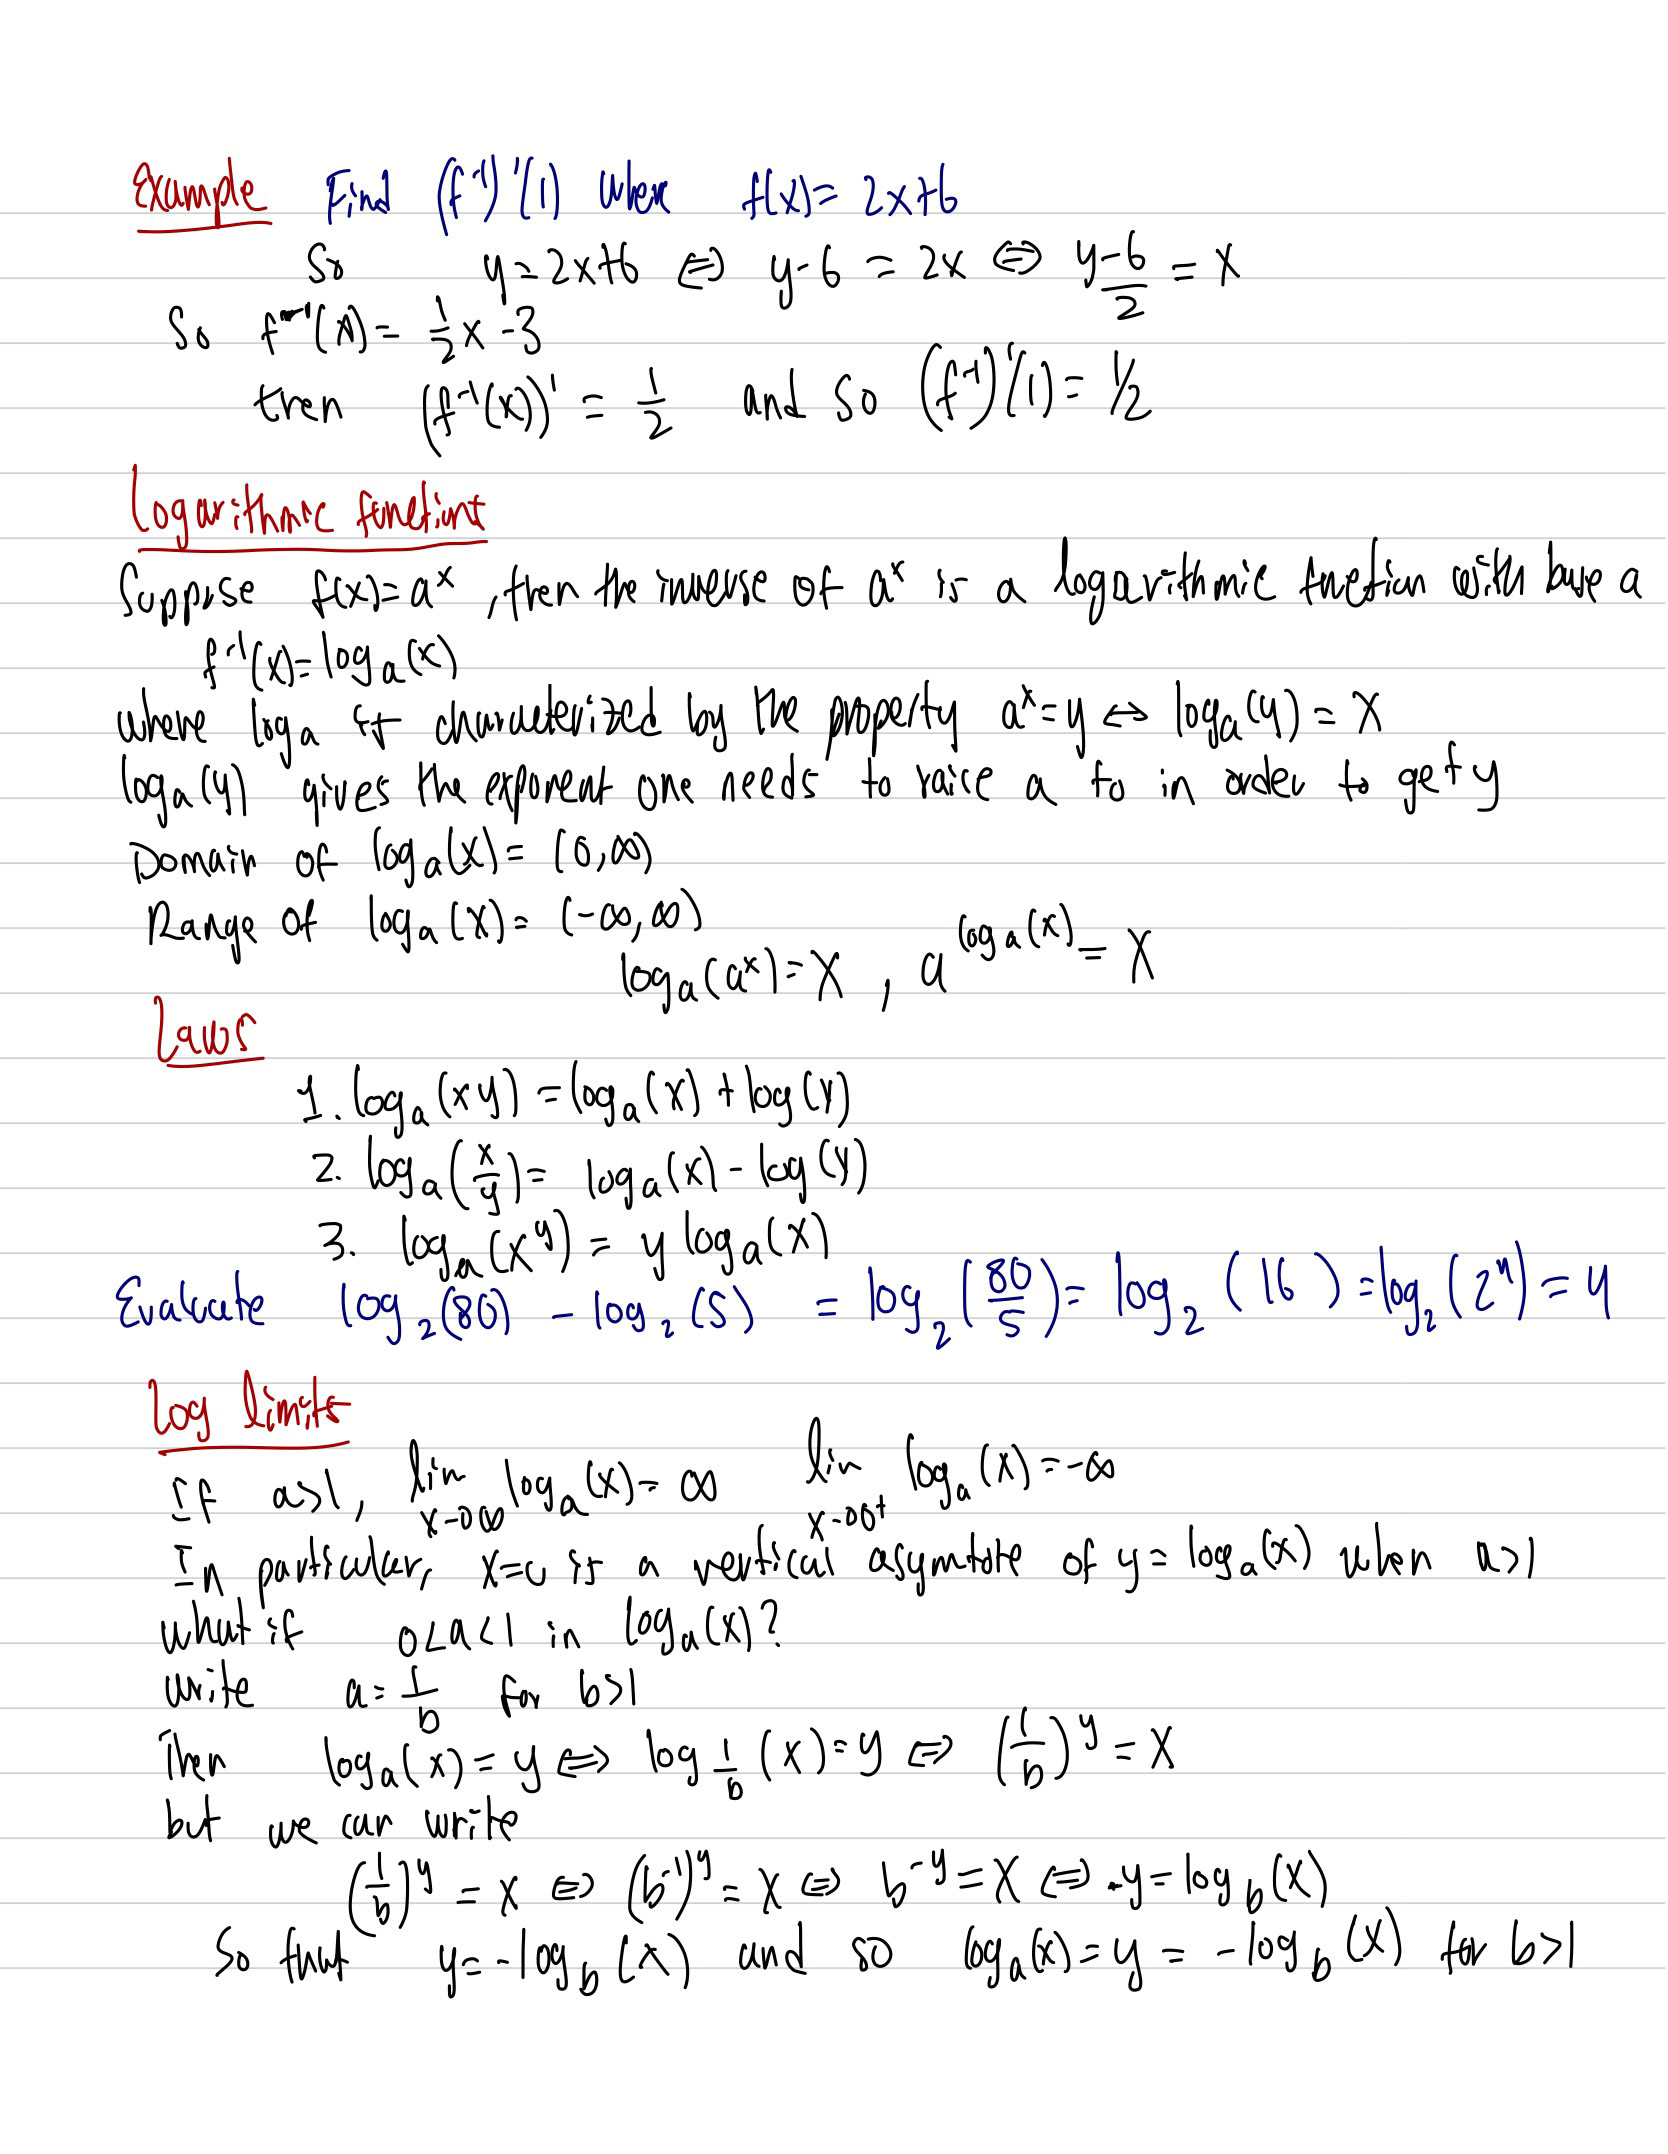 Example Find (f⁻¹)'(1) when f(x)= 2x+6
So y=2x+6 ⇔ y-6 = 2x ⇔ (y-6)/2 = x
So f⁻¹(x)= 1/2 x -3
then (f⁻¹(x))' = 1/2 and so (f⁻¹)'(1)= 1/2
Logarithmic functions
Suppose f(x)= aˣ, then the inverse of aˣ is a logarithmic function with base a
f⁻¹(x)= logₐ(x)
where logₐ is characterized by the property aˣ=y ⇔ logₐ(y) = x
logₐ(y) gives the exponent one needs to raice a to in order to get y
Domain of logₐ(x)= (0,∞)
Range of logₐ(x)= (-∞,∞)
logₐ(aˣ)=x , a^(logₐ(x)) = x
Laws
1. logₐ(xy) = logₐ(x) + log(y)
2. logₐ(x/y)= logₐ(x) - log(y)
3. logₐ(x^y) = y logₐ(x)
Evaluate log₂(80) - log₂(5) = log₂(80/5)= log₂(16) = log₂(2⁴) = 4
Log limits
If a>1, lim x→∞ logₐ(x)= ∞ lim x→0⁺ logₐ(x)=-∞
In particular, x=0 is a vertical asymtote of y= logₐ(x) when a>1
what if 0<a<1 in logₐ(x)?
write a= 1/b for b>1
Then logₐ(x)= y ⇔ log_(1/b)(x)=y ⇔ (1/b)^y = x
but we can write
(1/b)^y = x ⇔ (b⁻¹)^y = x ⇔ b^(-y) = x ⇔ -y= log_b(x)
So that y= -log_b(x) and so logₐ(x)= y = -log_b(x) for b>1